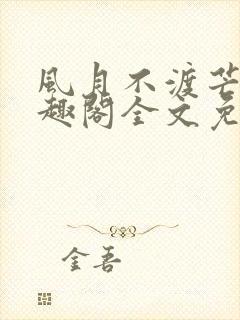 風月不渡芒
趣閣全文免
金吾